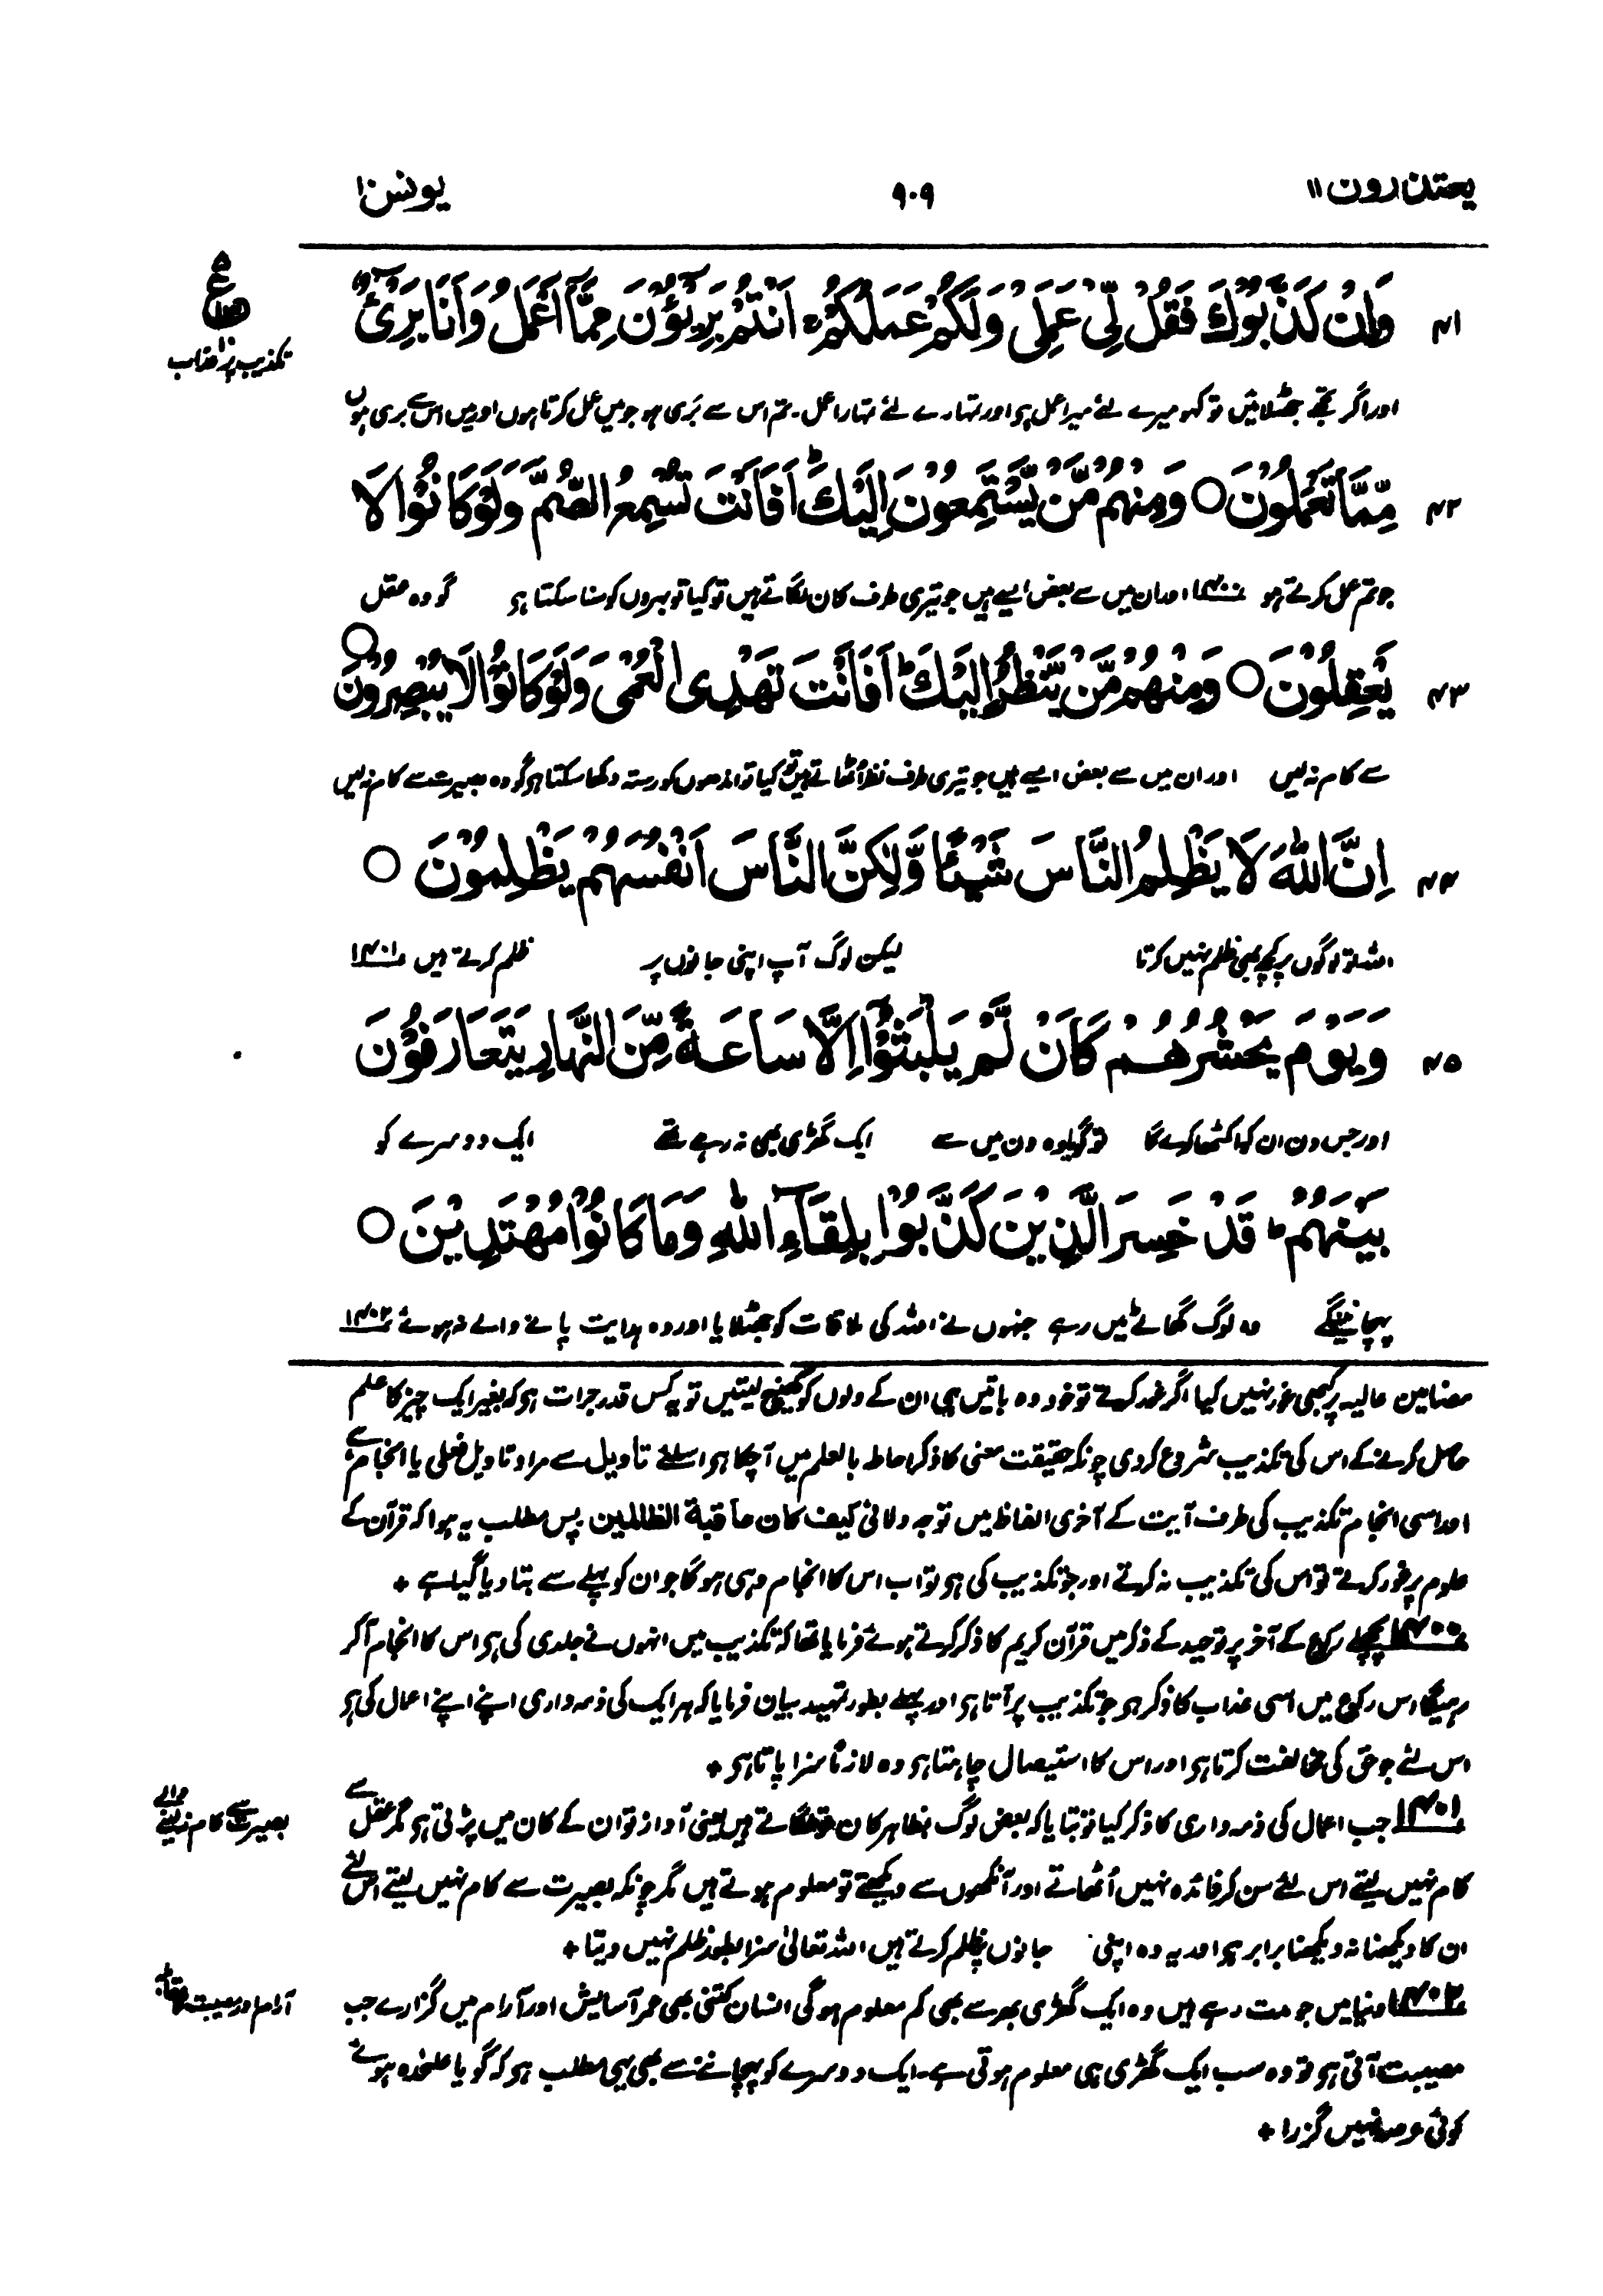 یعتذرون ۱۱
۹۰۹
یونس ۱۰
ع
تکذیب پر عذاب
۴۱ وَاِنْ كَذَّبُوْكَ فَقُلْ لِّیْ عَمَلِیْ وَلَكُمْ عَمَلُكُمْ ۚ اَنْتُمْ بَرِیْٓـُٔوْنَ مِمَّاۤ اَعْمَلُ وَاَنَا بَرِیْٓءٌ
اور اگر تجھے جھٹلائیں تو کہو میرے لئے میرا عمل ہو اور تمہارے لئے تمہارا عمل۔ تم اس سے بَری ہو جو میں عمل کرتا ہوں اور میں اس سے بری ہوں
۴۲ مِّمَّا تَعْمَلُوْنَ ○ وَمِنْهُمْ مَّنْ یَّسْتَمِعُوْنَ اِلَیْكَ ؕ اَفَاَنْتَ تُسْمِعُ الصُّمَّ وَلَوْ كَانُوْا لَا
جو تم عمل کرتے ہو ۱۴۰۰ اور ان میں سے بعض ایسے ہیں جو تیری طرف کان لگاتے ہیں تو کیا تو بہروں کو سنا سکتا ہو گو وہ عقل
۴۳ یَعْقِلُوْنَ ○ وَمِنْهُمْ مَّنْ یَّنْظُرُ اِلَیْكَ ؕ اَفَاَنْتَ تَهْدِی الْعُمْیَ وَلَوْ كَانُوْا لَا یُبْصِرُوْنَ ○
سے کام نہ لیں اور ان میں سے بعض ایسے ہیں جو تیری طرف نظر اُٹھاتے ہیں تو کیا تو اندھوں کو رستہ دکھا سکتا ہو گو وہ بصیرت سے کام نہ لیں
۴۴ اِنَّ اللّٰهَ لَا یَظْلِمُ النَّاسَ شَیْـًٔا وَّلٰكِنَّ النَّاسَ اَنْفُسَهُمْ یَظْلِمُوْنَ ○
اللہ تو لوگوں پر کچھ بھی ظلم نہیں کرتا لیکن لوگ آپ اپنی جانوں پر ظلم کرتے ہیں ۱۴۰۱
۴۵ وَیَوْمَ یَحْشُرُهُمْ كَاَنْ لَّمْ یَلْبَثُوْۤا اِلَّا سَاعَةً مِّنَ النَّهَارِ یَتَعَارَفُوْنَ
اور جس دن ان کو اکٹھا کرے گا تو گویا وہ دن میں سے ایک گھڑی بھی نہ رہے تھے ایک دوسرے کو
بَیْنَهُمْ ؕ قَدْ خَسِرَ الَّذِیْنَ كَذَّبُوْا بِلِقَآءِ اللّٰهِ وَمَا كَانُوْا مُهْتَدِیْنَ ○
پہچانینگے وہ لوگ گھاٹے میں رہے جنہوں نے اللہ کی ملاقات کو جھٹلایا اور وہ ہدایت پانے والے نہ ہوئے ۱۴۰۲
مضامین عالیہ پر کبھی غور نہیں کیا اگر غور کرتے تو خود وہ باتیں ہی ان کے دلوں کو کھینچ لیتیں تو یہ کس قدر جرات ہو کہ بغیر ایک چیز کا علم
حاصل کرنے کے اس کی تکذیب شروع کر دی چونکہ حقیقت معنی کا ذکر احاطہ بالعلم میں آچکا ہو اسلئے تاویل سے مراد تاویل فعلی یا انجام ہے
اور اسی انجام تکذیب کی طرف آیت کے آخری الفاظ میں توجہ دلائی کیف کان عاقبۃ الظالمین۔ پس مطلب یہ ہوا کہ قرآن کے
علوم پر غور کرتے تو اس کی تکذیب نہ کرتے اور جو تکذیب کی ہو تو اب اس کا انجام وہی ہو گا جو ان کو پہلے سے بتا دیا گیا ہے +
۱۴۰۰ پچھلے رکوع کے آخر پر توحید کے ذکر میں قرآن کریم کا ذکر کرتے ہوئے فرمایا تھا کہ تکذیب میں انہوں نے جلدی کی ہو اس کا انجام آکر
رہیگا اس رکوع میں اسی عذاب کا ذکر ہو جو تکذیب پر آتا ہو اور پہلے بطور تمہید بیان فرمایا کہ ہر ایک کی ذمہ داری اپنے اپنے اعمال کی ہو
اس لئے جو حق کی مخالفت کرتا ہو اور اس کا استیصال چاہتا ہو وہ لازماً سزا پاتا ہو +
بصیرت سے کام نہ لینے والے
۱۴۰۱ جب اعمال کی ذمہ داری کا ذکر کیا تو بتایا کہ بعض لوگ بظاہر کان تو لگاتے ہیں یعنی آواز تو ان کے کان میں پڑتی ہو مگر عقل سے
کام نہیں لیتے اس لئے سن کر فائدہ نہیں اُٹھاتے اور آنکھوں سے دیکھتے تو معلوم ہوتے ہیں مگر چونکہ بصیرت سے کام نہیں لیتے اس لئے
ان کا دیکھنا نہ دیکھنا برابر ہو اور یہ وہ اپنی جانوں پر ظلم کرتے ہیں اللہ تعالیٰ سزا بطور ظلم نہیں دیتا +
آرام اور مصیبت کا
۱۴۰۲ دنیا میں جو مدت رہے ہیں وہ ایک گھڑی بھر سے بھی کم معلوم ہو گی انسان کتنی بھی عمر آسایش اور آرام میں گزارے جب
مصیبت آتی ہو تو وہ سب ایک گھڑی ہی معلوم ہوتی ہے۔ ایک دوسرے کو پہچاننے سے بھی یہی مطلب ہو کہ گویا علیحدہ ہوئے
کوئی عرصہ نہیں گزرا +